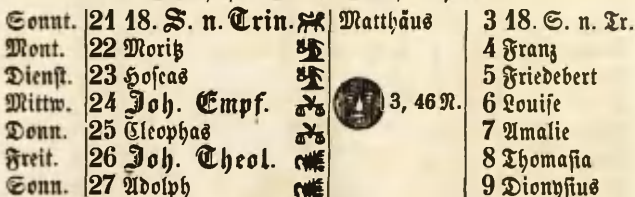 Sonnt. 21 18. S. n. Trin. Matthäus 3 18. S. n. Tr.
Mont. 22 Moritz 4 Franz
Dienst. 23 Hoseas 5 Friedebert
Mittw. 24 Joh. Empf. 3, 46 N. 6 Louise
Donn. 25 Cleophas 7 Amalie
Freit. 26 Joh. Theol. 8 Thomasia
Sonn. 27 Adolph 9 Dionysius